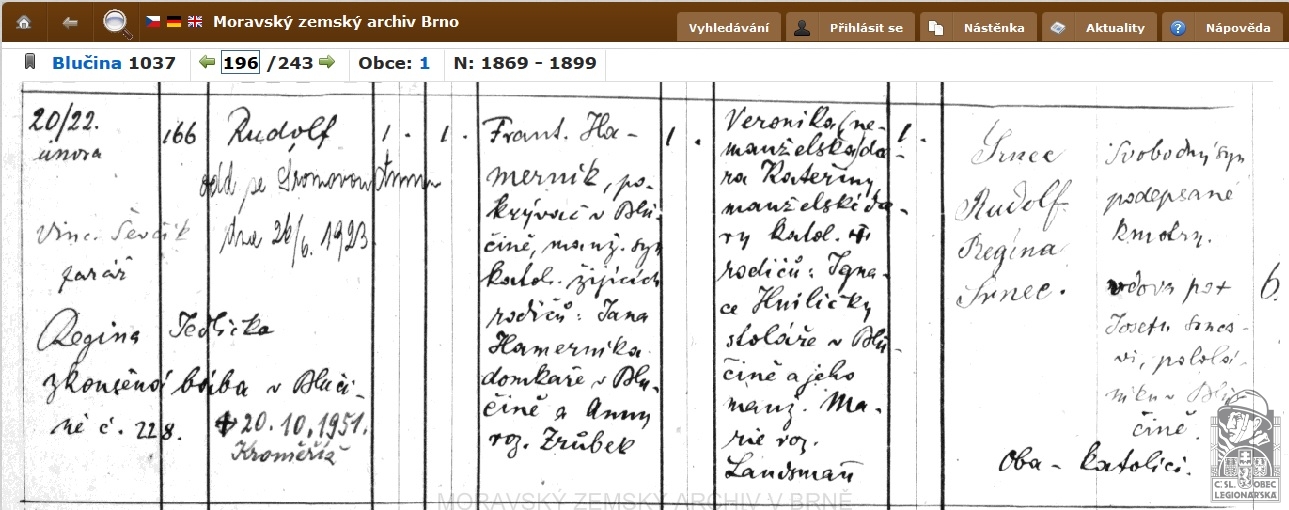 Moravský zemský archiv Brno
Vyhledávání
Přihlásit se
Nástěnka
Aktuality
Nápověda
Blučina 1037
196 /243
Obce: 1
N: 1869 - 1899
20/22.
února
Vinc. Ševčík
farář
Regina Jedlička
zkoušená bába v Bluči-
ně č. 228.
166
Rudolf
dna 26/6. 1923
✝20.10.1951.
Kroměříž
1.
1.
Frant. Ha-
merník, po-
krývač v Blu-
čině, manž. syn
katol. žijících
rodičů: Jana
Hamerníka
domkaře v Blu-
čině a Anny
roz. Zrůbek
1.
Veronika (ne-
manželská) dce-
ra Kateřiny
manželské dce-
ry katol. ✝
rodičů: Igna-
ce Hniličky
stoláře v Blu-
čině a jeho
manž. Ma-
rie roz.
Landsman
1.
Srnec
Rudolf
Regina
Srnec.
Svobodný syn
podepsané
kmotry.
vdova po ✝
Josefu Srnco-
vi, pololá-
níku v Blu-
čině.
Oba - katolíci.
6.
MORAVSKÝ ZEMSKÝ ARCHIV V BRNĚ
Č.SL. OBEC
LEGIONÁŘSKÁ